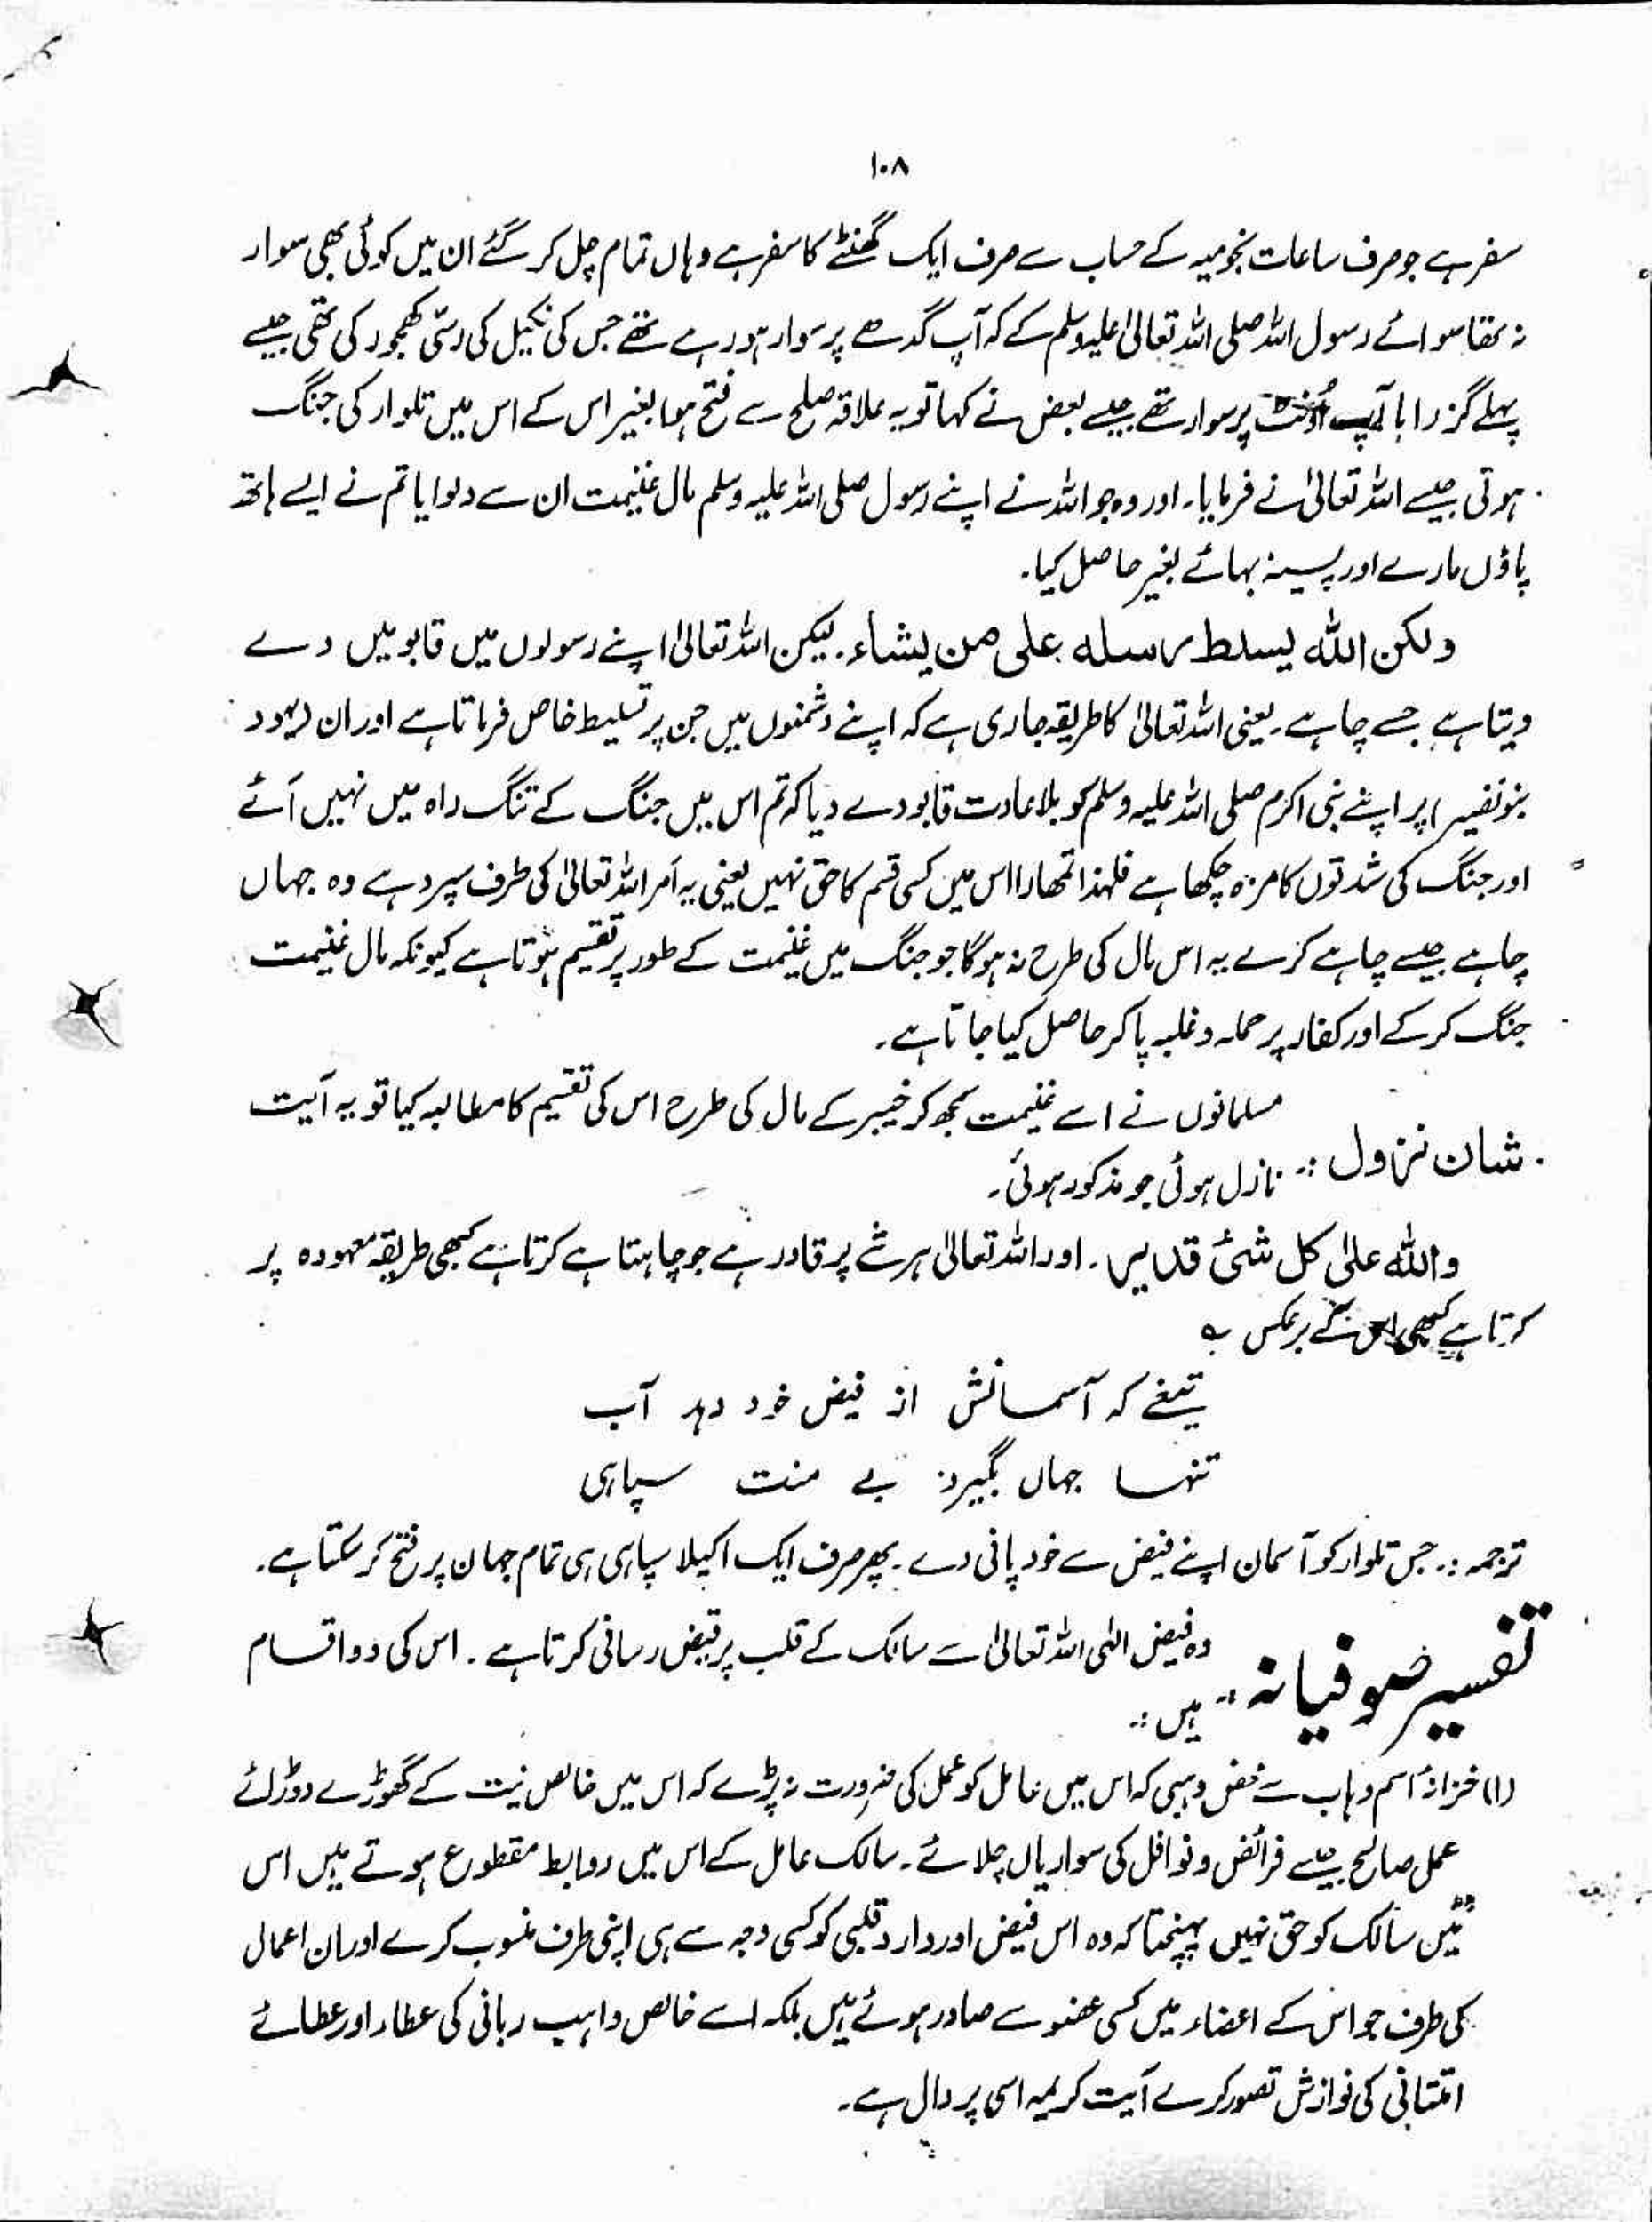 ۱۰۸
سفر ہے جو صرف ساعات نجومیہ کے حساب سے صرف ایک گھنٹے کا سفر ہے وہاں تمام چل کر گئے ان میں کوئی بھی سوار
نہ تھا سوائے رسول اللہ صلی اللہ تعالیٰ علیہ وسلم کے کہ آپ گدھے پر سوار ہو رہے تھے جس کی نکیل کی رسّی کھجور کی تھی جیسے
پہلے گزرا یا آپ اونٹ پر سوار تھے جیسے بعض نے کہا تو یہ علاقہ صلح سے فتح ہوا بغیر اس کے اس میں تلوار کی جنگ
ہوتی جیسے اللہ تعالیٰ نے فرمایا۔ اور وہ جو اللہ نے اپنے رسول صلی اللہ علیہ وسلم مال غنیمت ان سے دلوایا تم نے ایسے ہاتھ
پاؤں مارے اور پسینہ بہائے بغیر حاصل کیا۔
ولکن اللہ یسلط رسلہ علی من یشاء۔ لیکن اللہ تعالیٰ اپنے رسولوں میں قابو میں دے
دیتا ہے جسے چاہے۔ یعنی اللہ تعالیٰ کا طریقہ جاری ہے کہ اپنے دشمنوں میں جن پر تسلیط خاص فرماتا ہے اور ان (یہود
بنونضیر) پر اپنے نبی اکرم صلی اللہ علیہ وسلم کو بلا عادت قابو دے دیا کہ تم اس میں جنگ کے تنگ راہ میں نہیں آئے
اور جنگ کی شدتوں کا مزہ چکھا ہے فلہذا تمھارا اس میں کسی قسم کا حق نہیں یعنی یہ اَمر اللہ تعالیٰ کی طرف سپرد ہے وہ جہاں
چاہے جیسے چاہے کرے یہ اس مال کی طرح نہ ہوگا جو جنگ میں غنیمت کے طور پر تقسیم ہوتا ہے کیونکہ مال غنیمت
جنگ کرکے اور کفار پر حملہ و غلبہ پا کر حاصل کیا جاتا ہے۔
مسلمانوں نے اسے غنیمت سمجھ کر خیبر کے مال کی طرح اس کی تقسیم کا مطالبہ کیا تو یہ آیت
شان نزول :۔ نازل ہوئی جو مذکور ہوئی۔
واللہ علیٰ کل شئ قدیر۔ اور اللہ تعالیٰ ہر شے پر قادر ہے جو چاہتا ہے کرتا ہے کبھی طریقہ معہودہ پر
کرتا ہے کبھی اس کے برعکس ؎
تیغے کہ آسمانش از فیض خود دہد آب
تنہا جہاں بگیرد بے منت سپاہی
ترجمہ :۔ جس تلوار کو آسمان اپنے فیض سے خود پانی دے۔ پھر صرف ایک اکیلا سپاہی ہی تمام جہان پر فتح کر سکتا ہے۔
وہ فیض الٰہی اللہ تعالیٰ سے سالک کے قلب پر فیض رسانی کرتا ہے۔ اس کی دو اقسام
تفسیر صوفیانہ :۔ ہیں :۔
(۱) خزانۂ اسم وہاب سے محض وہبی کہ اس میں عامل کو عمل کی ضرورت نہ پڑے کہ اس میں خالص نیت کے گھوڑے دوڑائے
عمل صالح جیسے فرائض و نوافل کی سواریاں چلائے۔ سالک عامل کے اس میں روابط مقطوع ہوتے ہیں اس
میں سالک کو حق نہیں پہنچتا کہ وہ اس فیض اور وارد قلبی کو کسی وجہ سے ہی اپنی طرف منسوب کرے اور ان اعمال
کی طرف جو اس کے اعضاء میں کسی عضو سے صادر ہوئے ہیں بلکہ اسے خالص واہب ربانی کی عطاء اور عطائے
امتنانی کی نوازش تصور کرے آیت کریمہ اسی پر دال ہے۔